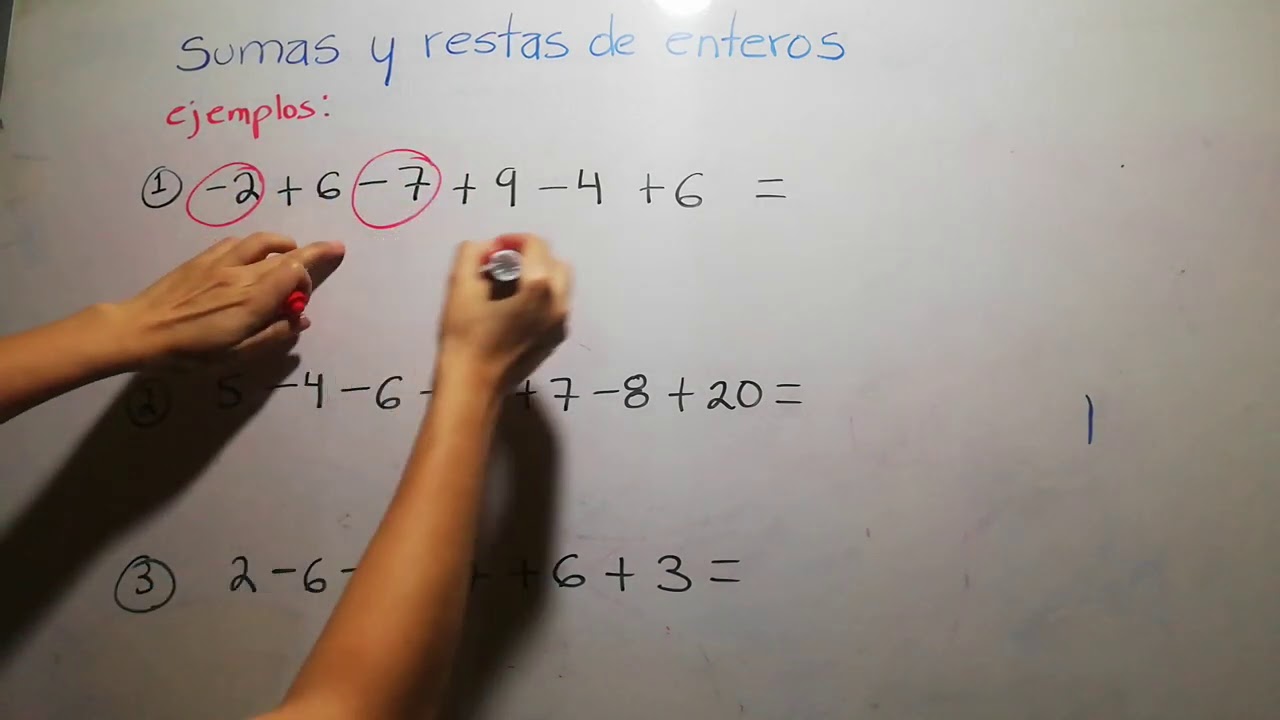 Sumas y restas de enteros
ejemplos:
① -2 + 6 - 7 + 9 - 4 + 6 =
② 5 - 4 - 6 - + 7 - 8 + 20 =
③ 2 - 6 - + 6 + 3 =